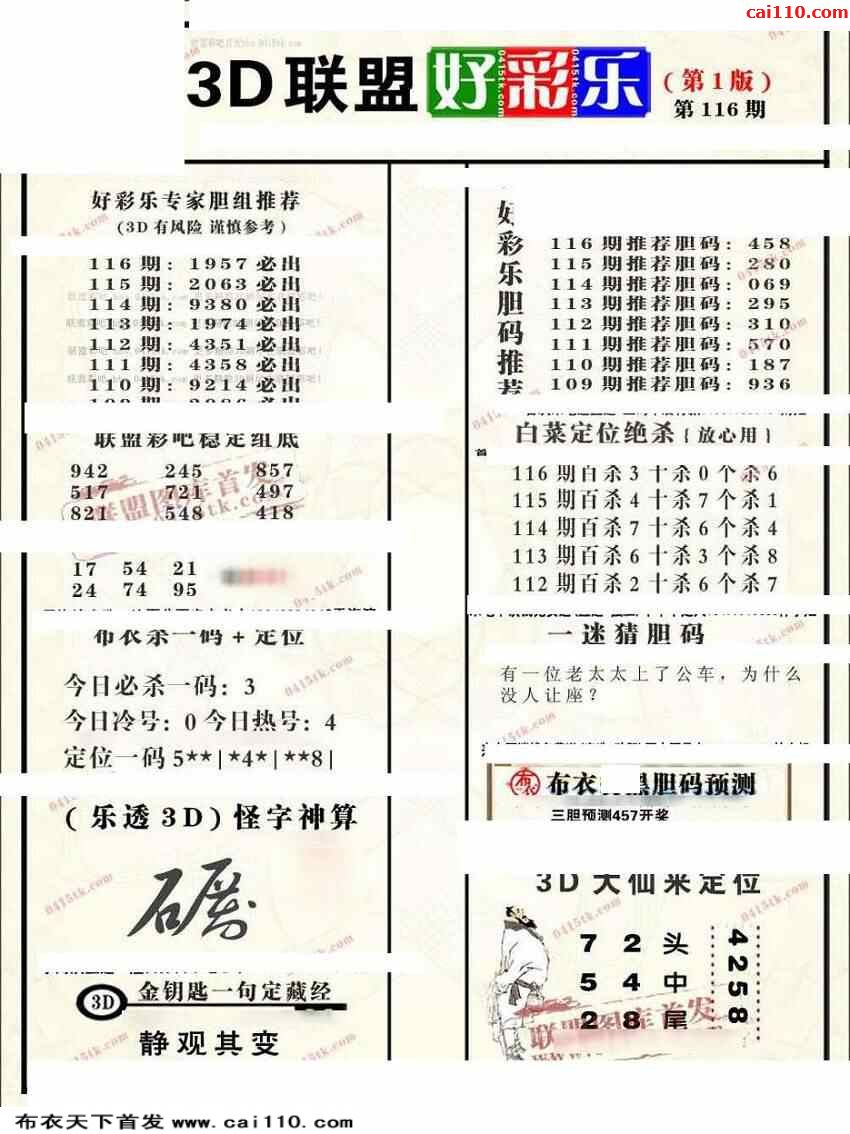 cai110.com
3D联盟好彩乐(第1版)
第116期
好彩乐专家胆组推荐
(3D有风险 谨慎参考)
116期:1957必出
115期:2063必出
114期:9380必出
113期:1974必出
112期:4351必出
111期:4358必出
110期:9214必出
联盟彩吧稳定组底
942 245 857
517 721 497
821 548 418
17 54 21
24 74 95
布衣杀一码+定位
今日必杀一码:3
今日冷号:0 今日热号:4
定位一码5**|*4*|**8|
(乐透3D)怪字神算
3D 金钥匙一句定藏经
静观其变
好彩乐胆码推荐
116期推荐胆码:458
115期推荐胆码:280
114期推荐胆码:069
113期推荐胆码:295
112期推荐胆码:310
111期推荐胆码:570
110期推荐胆码:187
109期推荐胆码:936
白菜定位绝杀{放心用}
116期百杀3十杀0个杀6
115期百杀4十杀7个杀1
114期百杀7十杀6个杀4
113期百杀6十杀3个杀8
112期百杀2十杀6个杀7
一迷猜胆码
有一位老太太上了公车,为什么
没人让座?
布衣 胆码预测
三胆预测457开奖
3D大仙来定位
7 2 头
5 4 中
2 8 尾
4258
联盟图库首发
0415tk.com
布衣天下首发 www.cai110.com